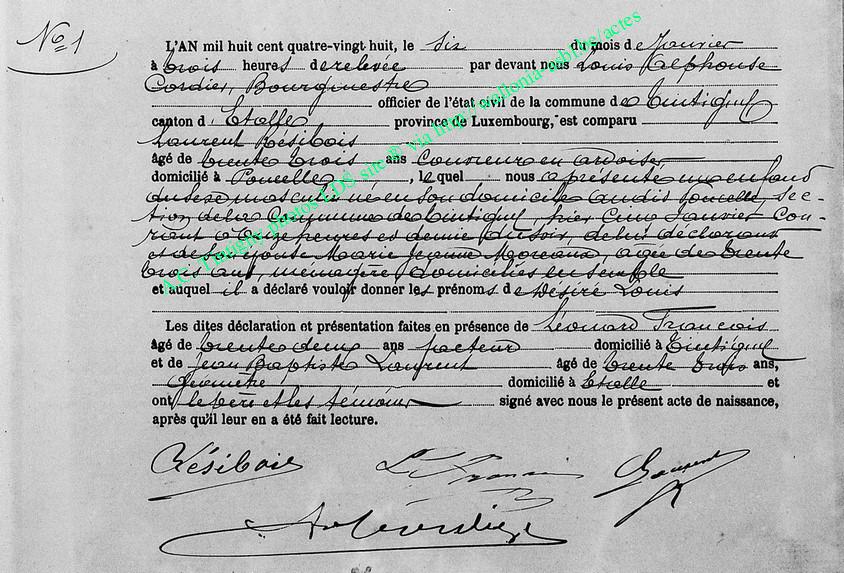 No 1
L'AN mil huit cent quatre-vingt huit, le six du mois de Janvier
à trois heures de relevée par devant nous Louis Alphonse
Cordier, Bourgmestre
officier de l'état civil de la commune de Tintigny
canton d'Etalle province de Luxembourg, est comparu
Laurent Résibois
âgé de trente trois ans couvreur en ardoises
domicilié à Poncelle, lequel nous a présenté un enfant
du sexe masculin né en son domicile au dit Poncelle, sec-
tion de la Commune de Tintigny, hier Cinq Janvier Cou-
rant à Onze heures et demie du soir, de lui déclarant
et de son épouse Marie Jeanne Moreaux, agée de trente
trois ans, ménagère domiciliés ensemble
et auquel il a déclaré vouloir donner les prénoms de Désiré Louis
Les dites déclaration et présentation faites en présence de Léonard François
âgé de trente deux ans facteur domicilié à Tintigny
et de Jean Baptiste Laurent âgé de trente trois ans,
Géomètre domicilié à Etalle et
ont le père et les témoins signé avec nous le présent acte de naissance,
après qu'il leur en a été fait lecture.
Résibois L François Laurent
A.C. Tintigny photos LDS site ® via http://wallonia-sabf.be/actes